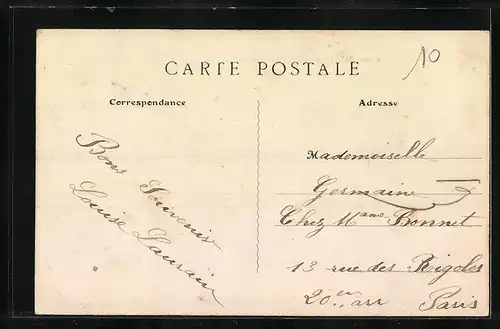 10
CARTE POSTALE
Correspondance
Adresse
Bons Souvenir
Louise
Mademoiselle
Germaine
Chez Mame Bonnet
13 rue des Rigoles
20 en arr Paris